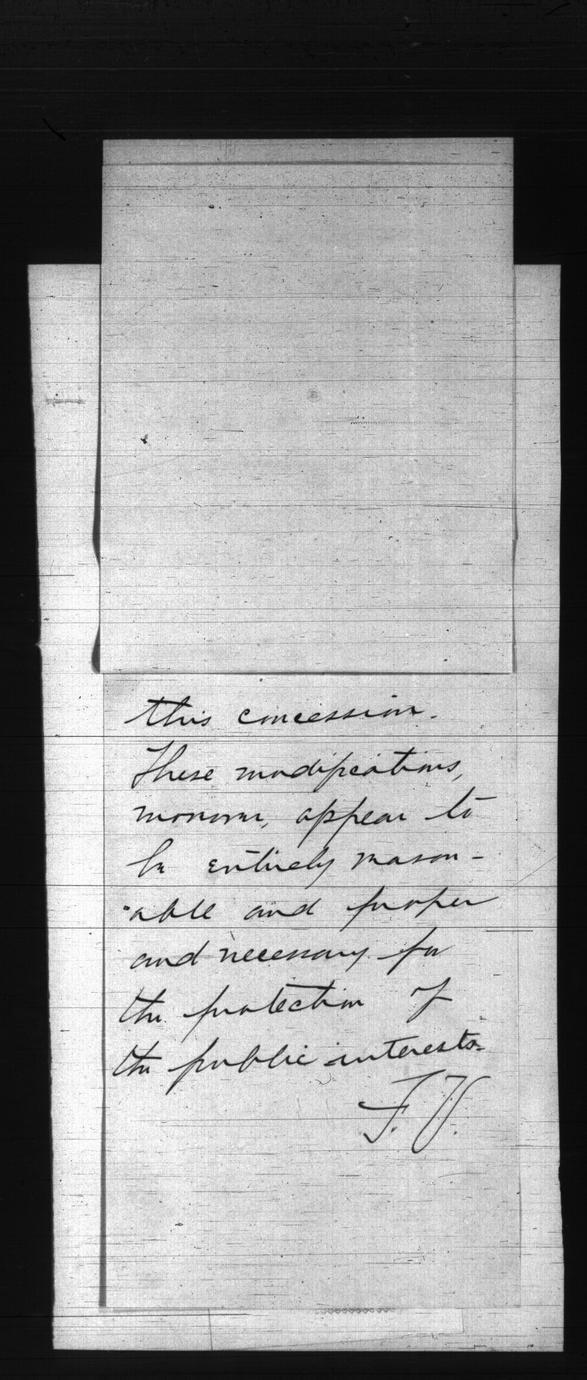 this concession.
These modifications,
moreover, appear to
be entirely reason-
able and proper
and necessary for
the protection of
the public interests.
F.